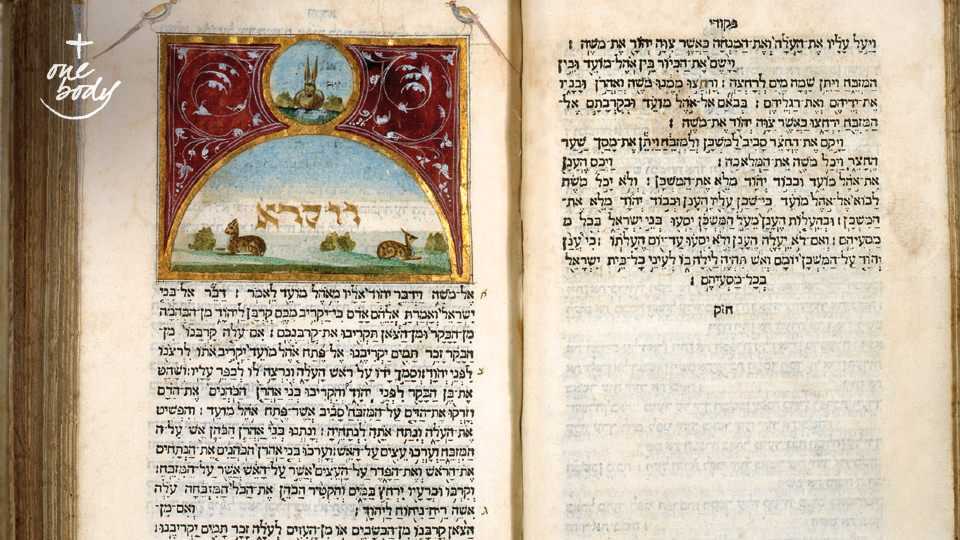 one
body
פקודי
ויעל עליו את־העלה ואת־המנחה כאשר צוה יהוה את־משה׃
וישם את־הכיור בין־אהל מועד ובין
המזבח ויתן שמה מים לרחצה׃ ורחצו ממנו משה ואהרן ובניו
את־ידיהם ואת־רגליהם׃ בבאם אל־אהל מועד ובקרבתם אל־
המזבח ירחצו כאשר צוה יהוה את־משה׃
ויקם את־החצר סביב למשכן ולמזבח ויתן את־מסך שער
החצר ויכל משה את־המלאכה׃ ויכס הענן
את־אהל מועד וכבוד יהוה מלא את־המשכן׃ ולא יכל משה
לבוא אל־אהל מועד כי־שכן עליו הענן וכבוד יהוה מלא את־
המשכן׃ ובהעלות הענן מעל המשכן יסעו בני ישראל בכל מ
מסעיהם׃ ואם־לא יעלה הענן ולא יסעו עד־יום העלתו׃ כי ענן
יהוה על־המשכן יומם ואש תהיה לילה בו לעיני כל־בית ישראל
בכל־מסעיהם׃
חזק
ויקרא
אל־משה וידבר יהוה אליו מאהל מועד לאמר׃ דבר אל־בני
ישראל ואמרת אלהם אדם כי־יקריב מכם קרבן ליהוה מן־הבהמה
מן־הבקר ומן־הצאן תקריבו את־קרבנכם׃ אם־עלה קרבנו מן־
הבקר זכר תמים יקריבנו אל־פתח אהל מועד יקריב אתו לרצנו
לפני יהוה׃ וסמך ידו על ראש העלה ונרצה לו לכפר עליו׃ ושחט
את־בן הבקר לפני יהוה והקריבו בני אהרן הכהנים את־הדם
וזרקו את־הדם על־המזבח סביב אשר־פתח אהל מועד׃ והפשיט
את־העלה ונתח אתה לנתחיה׃ ונתנו בני אהרן הכהן אש על־ה
המזבח וערכו עצים על־האש׃ וערכו בני אהרן הכהנים את־הנתחים
את־הראש ואת־הפדר על־העצים אשר על־האש אשר על־המזבח׃
וקרבו וכרעיו ירחץ במים והקטיר הכהן את־הכל המזבחה עלה
אשה ריח־ניחוח ליהוה׃ ואם־מן־
הצאן קרבנו מן־הכשבים או מן־העזים לעלה זכר תמים יקריבנו׃